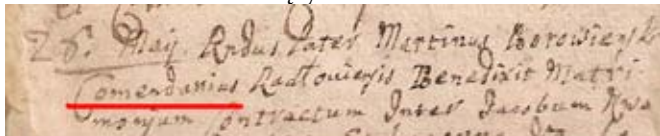 28. Maij. Rndus Pater Martinus Borowiensk
Comendarius Radłoviensis Benedixit Matri-
monium Contractum Inter Jacobum Kwa